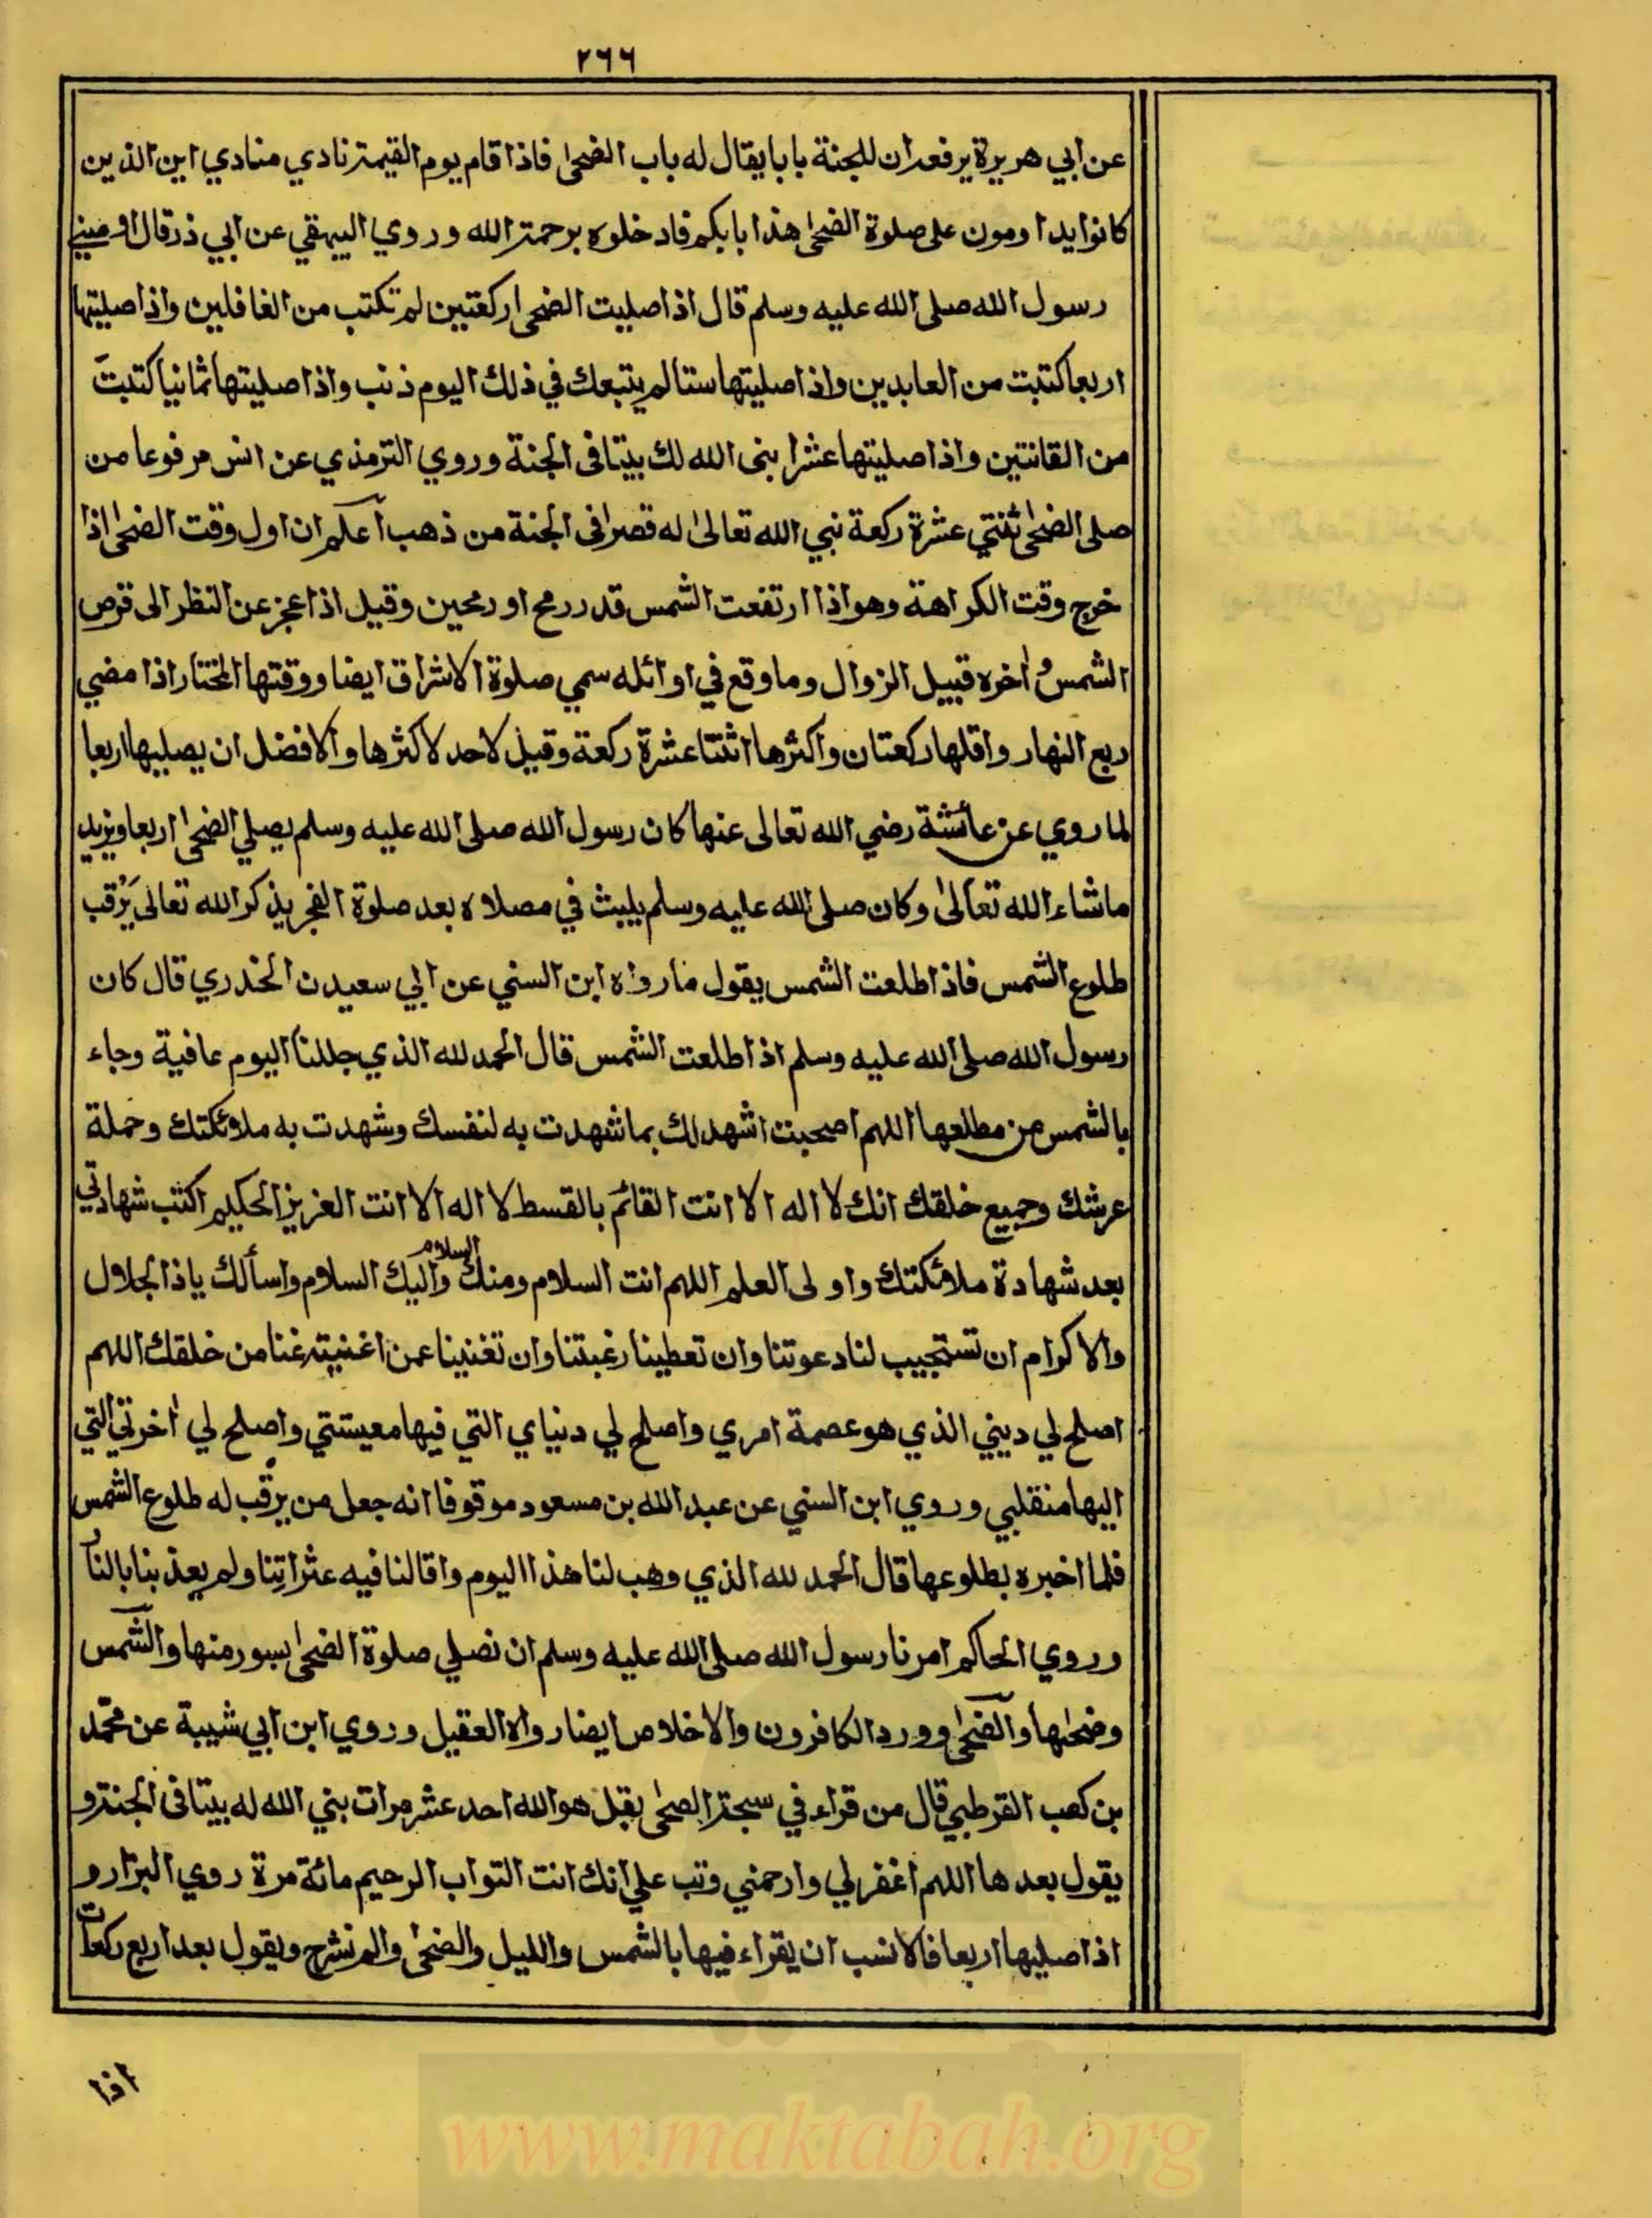 ٢٦٦
عن ابي هريرة يرفعه ان للجنة بابا يقال له باب الضحى فاذا قام يوم القيمة نادي منادي اين الذين
كانوا يداومون على صلوة الضحى هذا بابكم فادخلوه برحمة الله وروي البيهقي عن ابي ذر قال اوصيني
رسول الله صلى الله عليه وسلم قال اذا صليت الضحى ركعتين لم تكتب من الغافلين واذا صليتها
اربعا كتبت من العابدين واذا صليتها ستا لم يتبعك في ذلك اليوم ذنب واذا صليتها ثمانيا كتبت
من القانتين واذا صليتها عشرا بنى الله لك بيتا فى الجنة وروي الترمذي عن انس مرفوعا من
صلى الضحى اثنتي عشرة ركعة نبي الله تعالى له قصرا فى الجنة من ذهب اعلم ان اول وقت الضحى اذا
خرج وقت الكراهة وهو اذا ارتفعت الشمس قدر رمح او رمحين وقيل اذا عجز عن النظر الى قرص
الشمس واخره قبيل الزوال وما وقع في اوائله سمي صلوة الاشراق ايضا ووقتها المختار اذا مضي
ربع النهار واقلها ركعتان واكثرها اثنتا عشرة ركعة وقيل لاحد لاكثرها والافضل ان يصليها اربعا
لما روي عن عائشة رضي الله تعالى عنها كان رسول الله صلى الله عليه وسلم يصلي الضحى اربعا ويزيد
ماشاء الله تعالى وكان صلى الله عليه وسلم يلبث في مصلاه بعد صلوة الفجر يذكر الله تعالى يرقب
طلوع الشمس فاذا طلعت الشمس يقول مارواه ابن السني عن ابي سعيدن الخدري قال كان
رسول الله صلى الله عليه وسلم اذا طلعت الشمس قال الحمد لله الذي جللنا اليوم عافية وجاء
بالشمس من مطلعها اللهم اصبحت اشهد لك بما شهدت به لنفسك وشهدت به ملائكتك وحملة
عرشك وجميع خلقك انك لا اله الا انت القائم بالقسط لا اله الا انت العزيز الحكيم اكتب شهادتي
بعد شهادة ملائكتك واولى العلم اللهم انت السلام ومنك السلام واليك السلام واسألك ياذا الجلال
والاكرام ان تستجيب لنا دعوتنا وان تعطينا رغبتنا وان تغنينا عمن اغنيته عنا من خلقك اللهم
اصلح لي ديني الذي هو عصمة امري واصلح لي دنياي التي فيها معيشتي واصلح لي اخرتي التي
اليها منقلبي وروي ابن السني عن عبد الله بن مسعود موقوفا انه جعل من يرقب له طلوع الشمس
فلما اخبره بطلوعها قال الحمد لله الذي وهب لنا هذا اليوم واقالنا فيه عثراتنا ولم يعذبنا بالنار
وروي الحاكم امرنا رسول الله صلى الله عليه وسلم ان نصلي صلوة الضحى بسور منها والشمس
وضحها والضحى وورد الكافرون والاخلاص ايضا رواه العقيل وروي ابن ابي شيبة عن محمد
بن كعب القرطبي قال من قراء في سبحة الضحى بقل هو الله احد عشر مرات بني الله له بيتا فى الجنة و
يقول بعدها اللهم اغفر لي وارحمني وتب علي انك انت التواب الرحيم مائة مرة روي البزار و
اذا صليها اربعا فالانسب ان يقراء فيها بالشمس والليل والضحى والم نشرح ويقول بعد اربع ركعات
اذا
www.maktabah.org